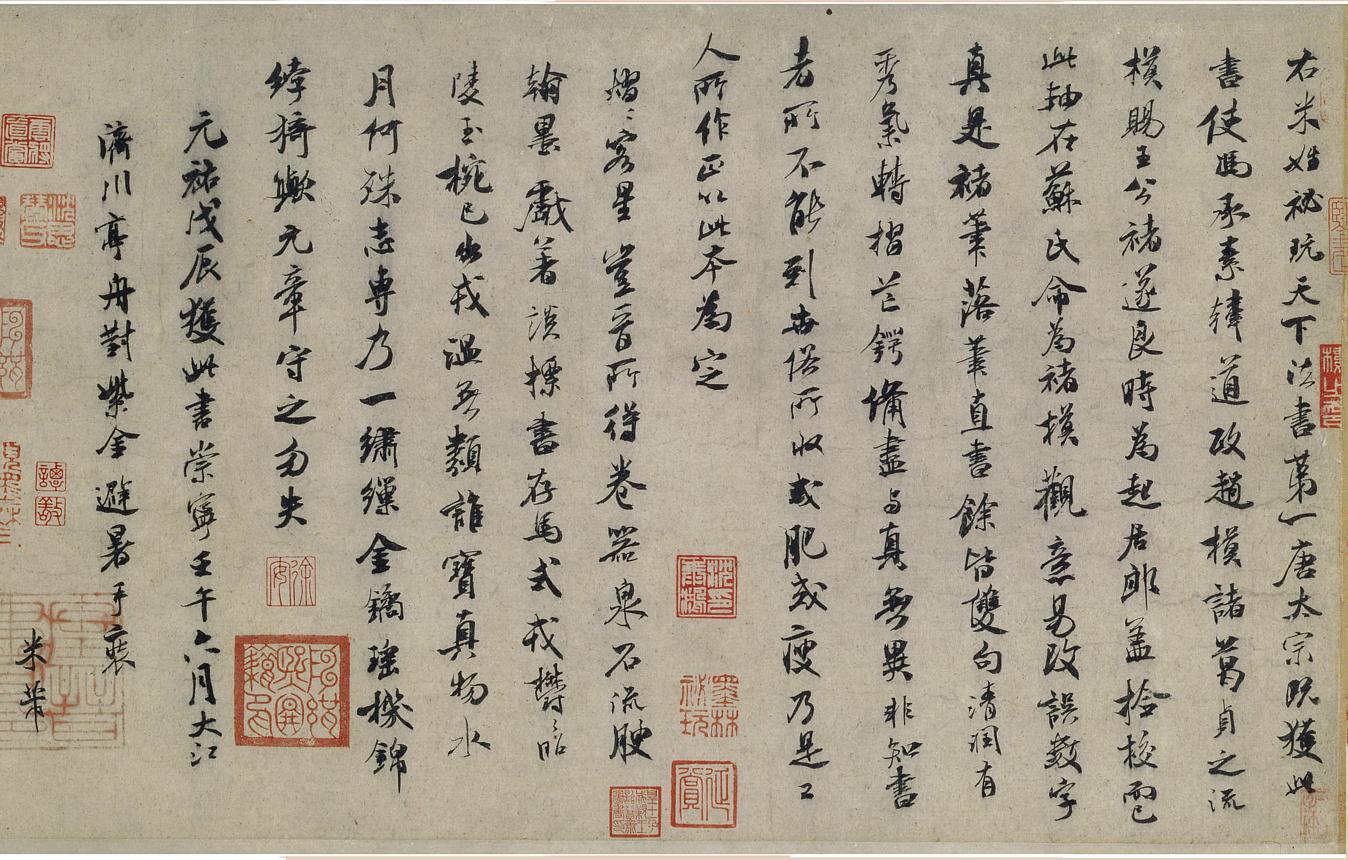 右米姓秘玩天下法書第一唐太宗既獲此
書使馮承素韓道政趙模諸葛貞之流
模賜王公褚遂良時為起居郎蓋撿校而已
此軸在蘇氏命為褚模觀意易改誤數字
真是褚筆落筆直書餘皆雙勾清潤有
秀氣轉摺芒鍔備盡与真無異非知書
者所不能到世俗所收或肥或瘦乃是工
人所作正以此本為定
熠〻客星豈晉所得卷器泉石流腴
翰墨戲著談標書存馬式戎鬱〻昭
陵玉椀已出戎溫無類誰寶真物水
月何殊志專乃一繡繅金鐍瑤機錦
綷猗歟元章守之勿失
元祐戊辰獲此書崇寧壬午六月大江
濟川亭舟對紫金避暑手裝
米芾